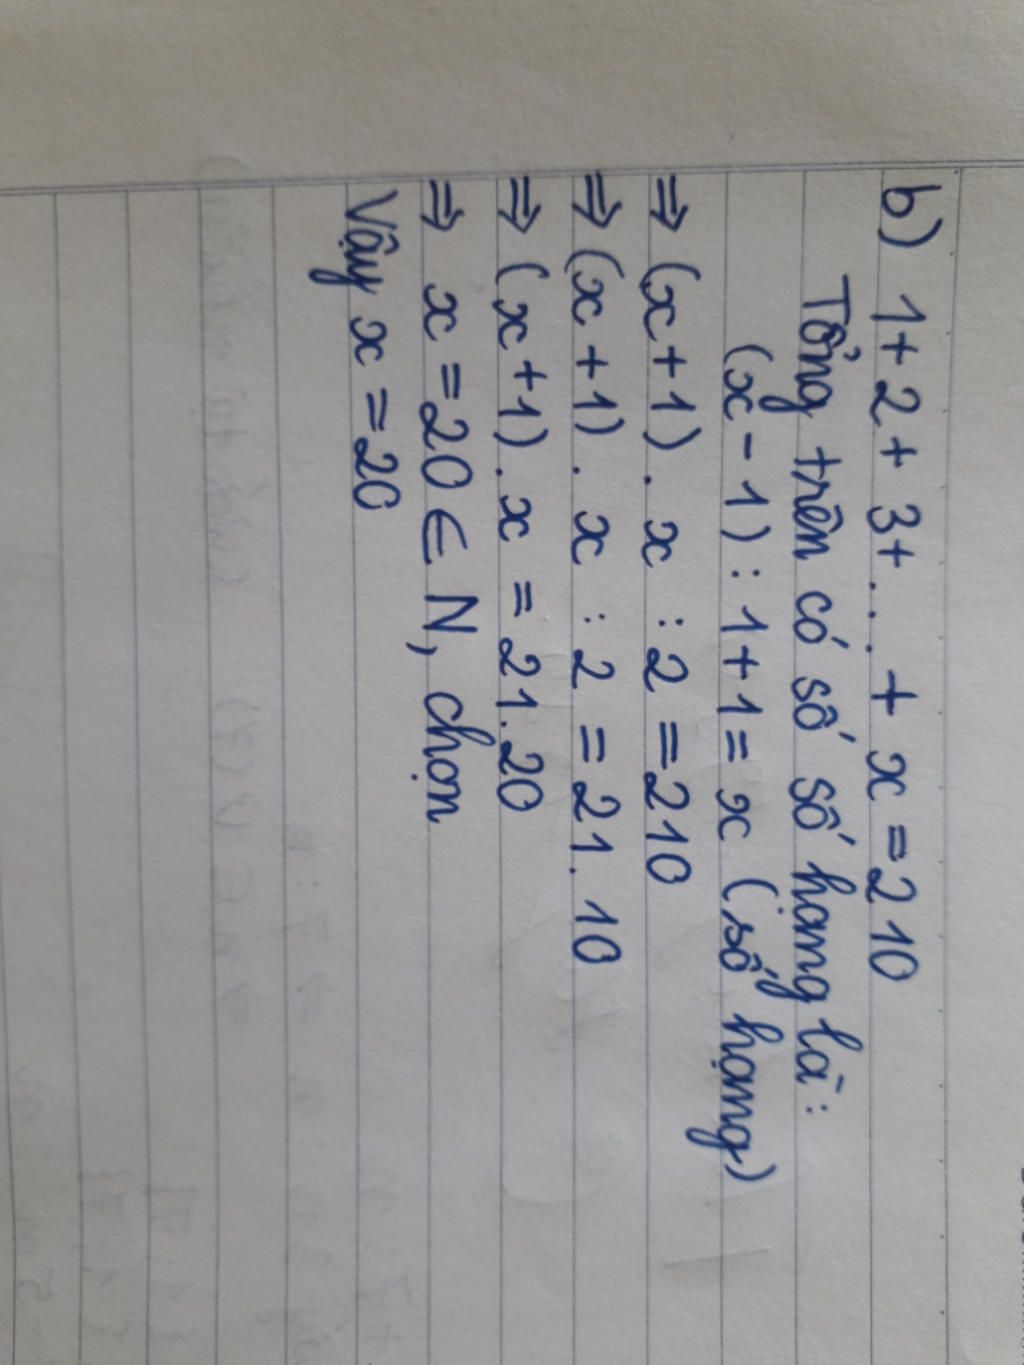 b) 1+2+3+...+ x = 210
Tổng trên có số số hạng là:
(x-1):1+1 = x (số hạng)
⇒ (x+1).x :2 = 210
⇒ (x+1).x :2 = 21.10
⇒ (x+1).x = 21.20
⇒ x = 20 ∈ N, chọn
Vậy x = 20